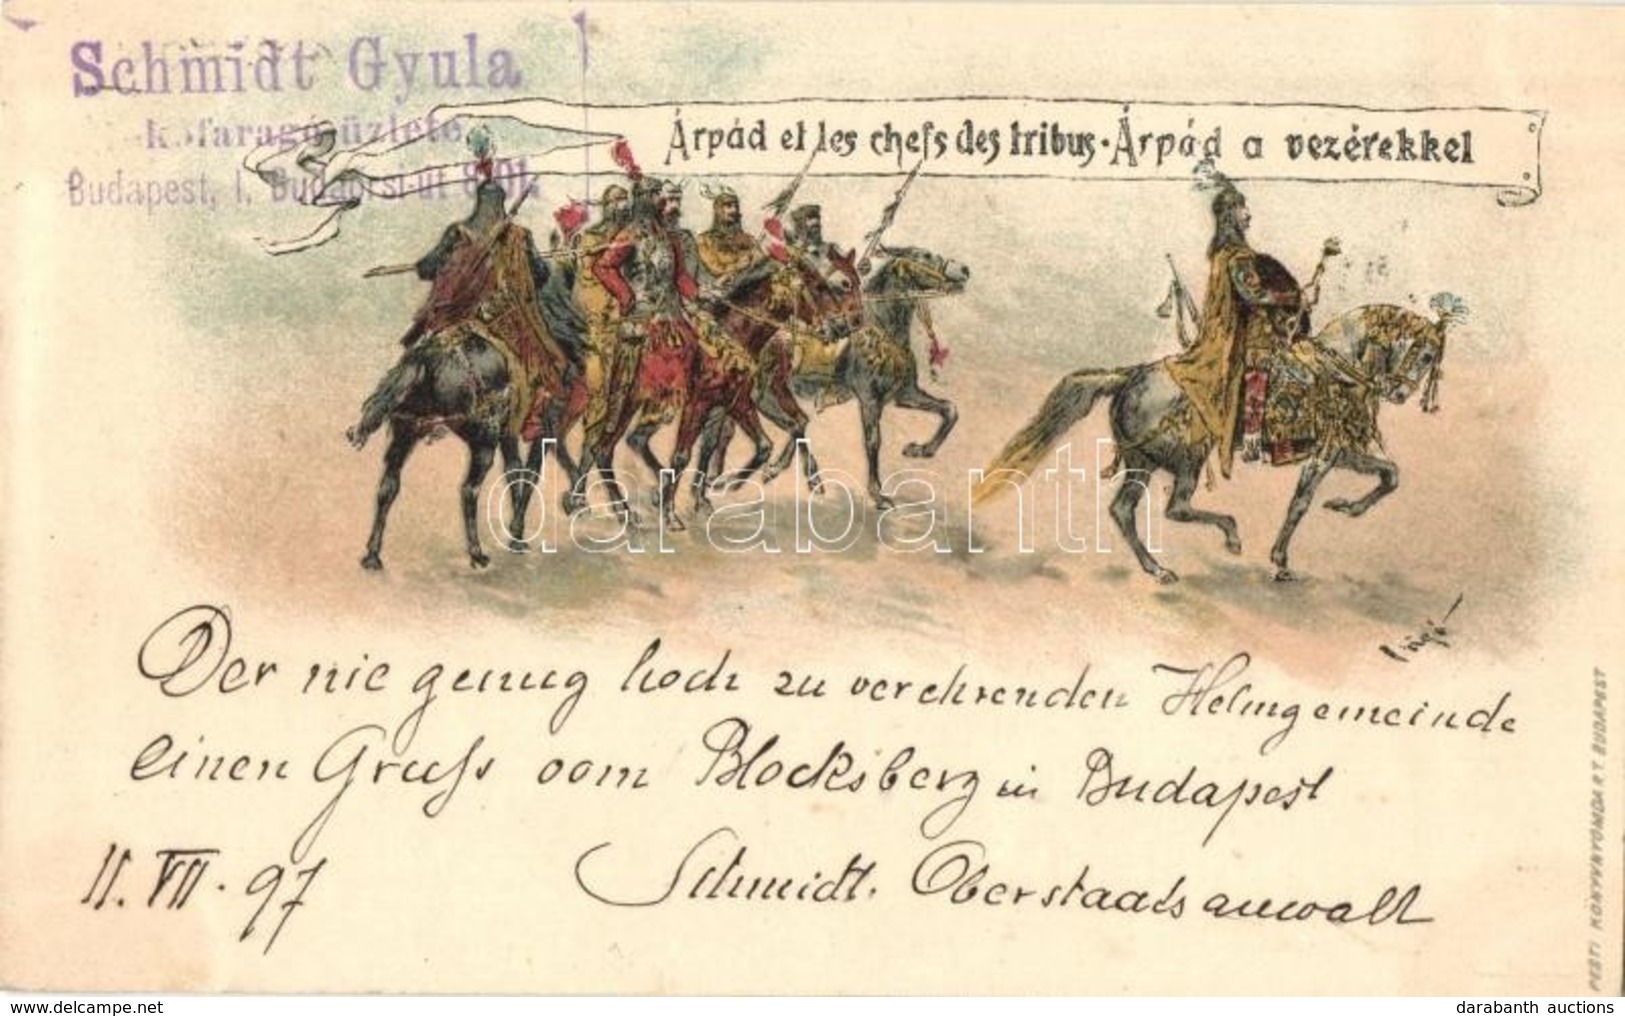 Schmidt Gyula
kőfaragó üzlete
Budapest, I. Budaörsi-út
Árpád et les chefs des tribus · Árpád a vezérekkel
darabanth
Der nie genug hoch zu verehrenden Helmgemeinde
einen Gruss vom Blocksberg in Budapest
11. VII. 97
Schmidt. Oberstaatsanwalt
PESTI KÖNYVNYOMDA R.T. BUDAPEST
https://www.delcampe.net
darabanth auctions